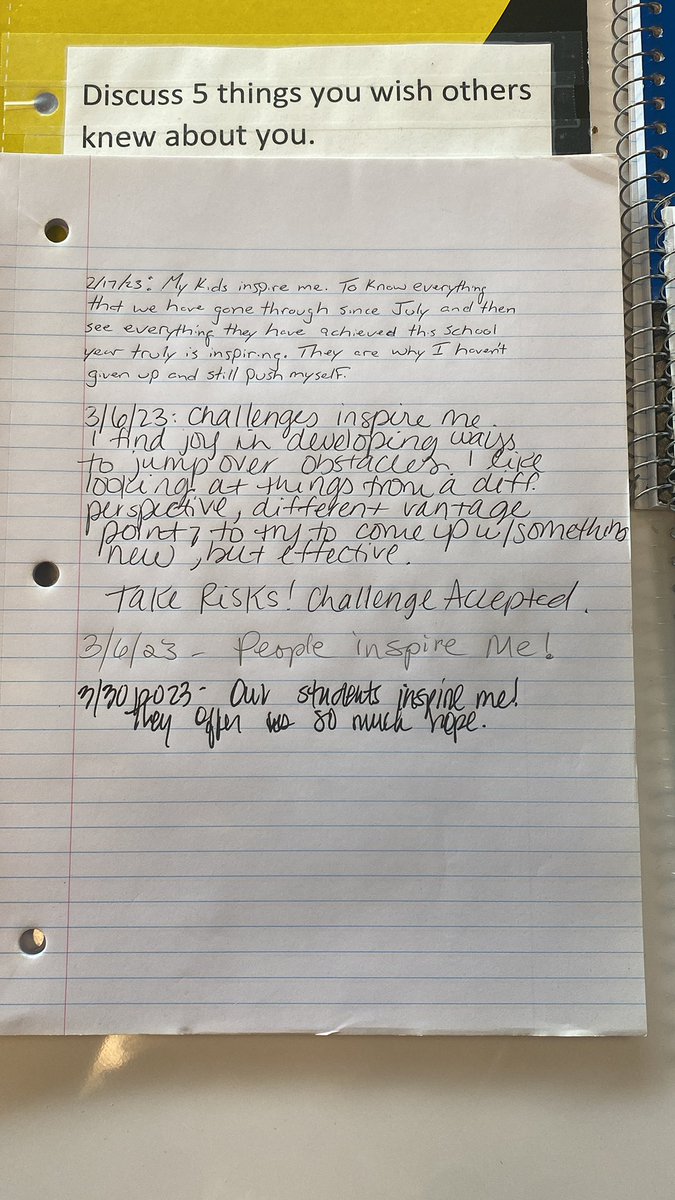 Discuss 5 things you wish others
knew about you.
2/17/23: My kids inspire me. To know everything
that we have gone through since July and then
see everything they have achieved this school
year truly is inspiring. They are why I haven't
given up and still push myself.
3/6/23: Challenges inspire me.
I find joy in developing ways
to jump over obstacles. I like
looking at things from a diff.
perspective, different vantage
point, to try to come up w/something
new, but effective.
Take Risks! Challenge Accepted.
3/6/23 - People inspire Me!
3/30/2023 - Our students inspire me!
They offer so much hope.